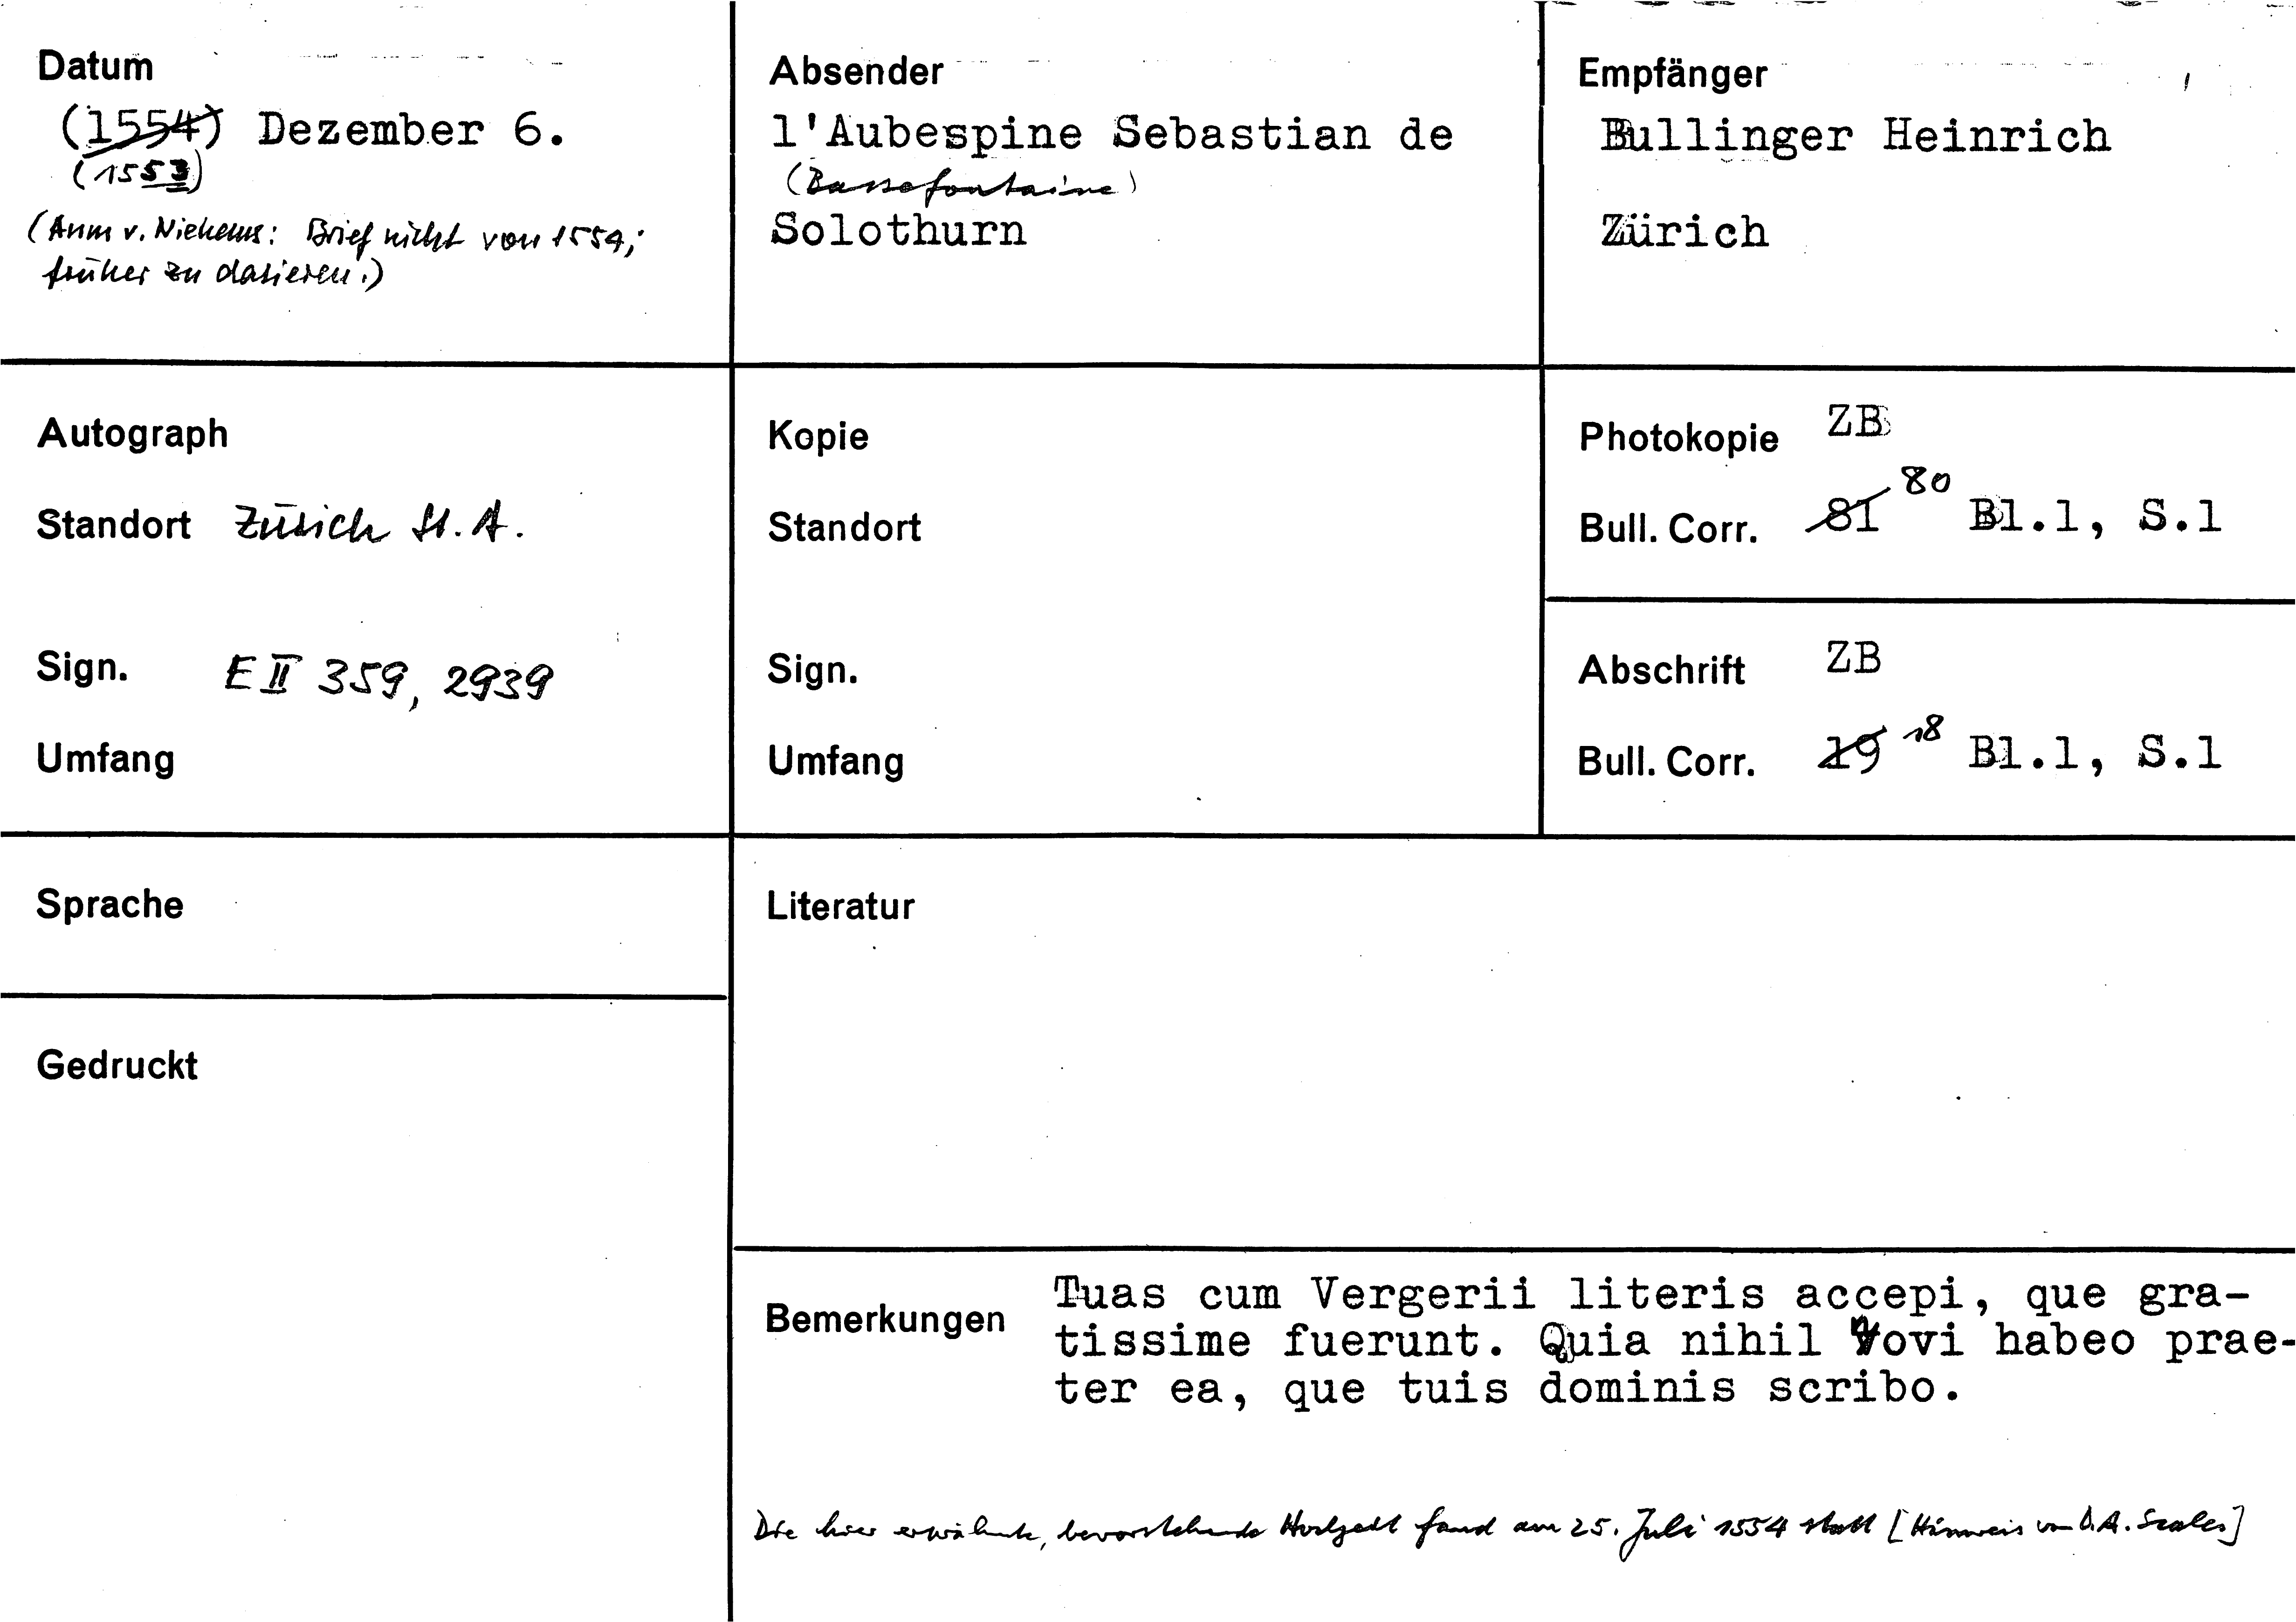 Datum
(1554) Dezember 6.
(1553)
(Anm v. Niehans: Brief nicht von 1554;
früher zu datieren.)
Absender
l'Aubespine Sebastian de
(Bassefontaine)
Solothurn
Empfänger
Bullinger Heinrich
Zürich
Autograph
Standort Zürich St. A.
Sign. E II 359, 2939
Umfang
Kopie
Standort
Sign.
Umfang
Photokopie ZB
Bull. Corr. 81 80 Bl.1, S.1
Abschrift ZB
Bull. Corr. 19 18 Bl.1, S.1
Sprache
Gedruckt
Literatur
Bemerkungen
Tuas cum Vergerii literis accepi, que gra-
tissime fuerunt. Quia nihil novi habeo prae-
ter ea, que tuis dominis scribo.
Die hier erwähnte, bevorstehende Hochzeit fand am 25. Juli 1554 statt [Hinweis von D.A. Scales]